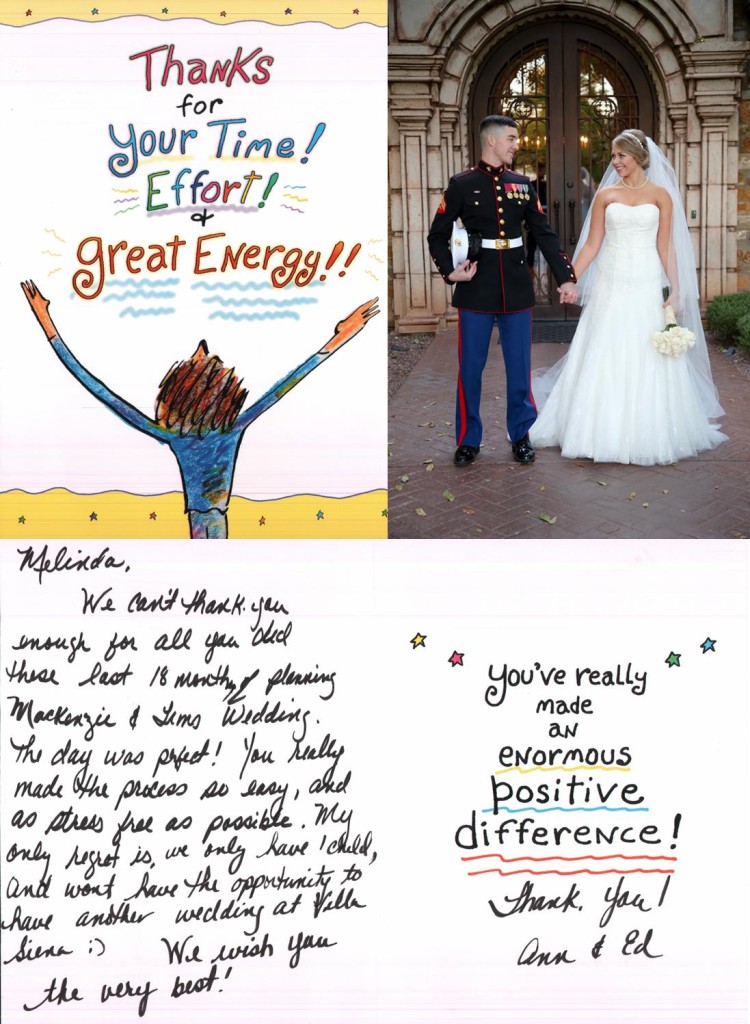 Thanks
for
Your Time!
Effort!
&
great Energy!!
Melinda,
We can't thank you
enough for all you did
these last 18 months of planning
Mackenzie & Tims Wedding.
The day was perfect! You really
made the process so easy, and
as stress free as possible. My
only regret is, we only have 1 child,
and wont have the opportunity to
have another wedding at Villa
Siena :) We wish you
the very best!
You've really
made
an
enormous
positive
difference!
Thank You!
Ann & Ed